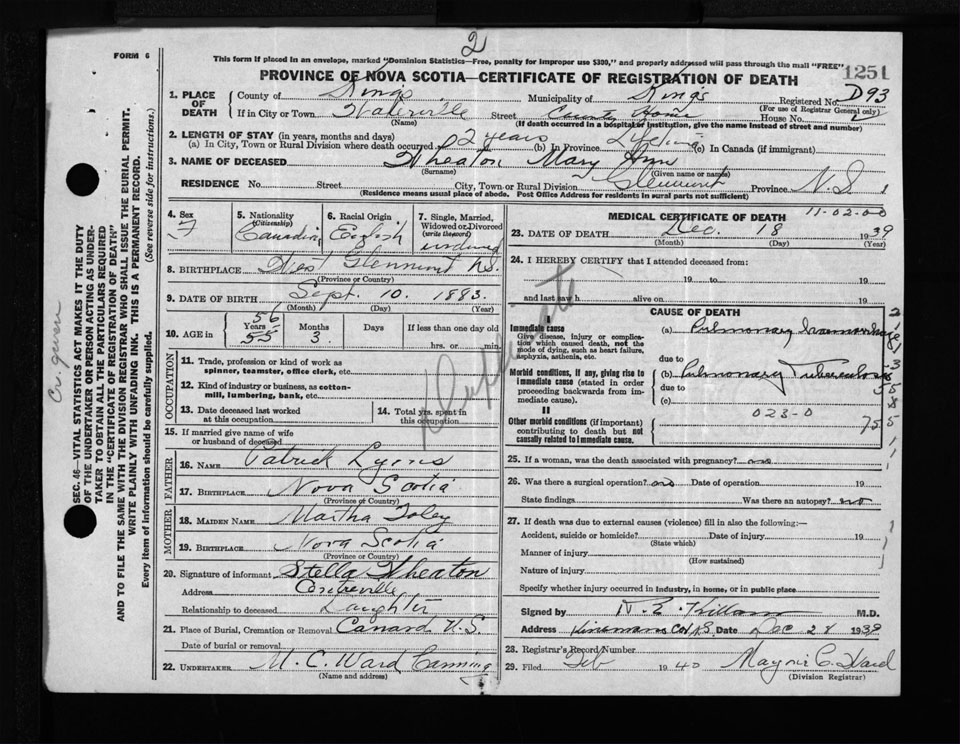 2
FORM 6
This form if placed in an envelope, marked "Dominion Statistics—Free, penalty for improper use $300," and properly addressed will pass through the mail "FREE"
PROVINCE OF NOVA SCOTIA—CERTIFICATE OF REGISTRATION OF DEATH
1251
1. PLACE OF DEATH
County of Kings Municipality of Kings Registered No. D93
(For use of Registrar General only)
If in City or Town Waterville Street County Home House No.
(Name) (If death occurred in a hospital or institution, give the name instead of street and number)
2. LENGTH OF STAY (in years, months and days)
(a) In City, Town or Rural Division where death occurred 2 years (b) In Province Lifetime (c) In Canada (if immigrant)
3. NAME OF DECEASED Wheaton Mary Ann
(Surname) (Given name or names)
RESIDENCE No. Street City, Town or Rural Division Glenmont Province N.S.
(Residence means usual place of abode. Post Office Address for residents in rural parts not sufficient)
4. Sex F
5. Nationality (Citizenship) Canadian
6. Racial Origin English
7. Single, Married, Widowed or Divorced (write the word) widowed
8. BIRTHPLACE West Glenmont N.S.
(Province or Country)
9. DATE OF BIRTH Sept. 10. 1883.
(Month) (Day) (Year)
10. AGE in 56 Years 55 Months 3 Days If less than one day old hrs. or min.
OCCUPATION
11. Trade, profession or kind of work as spinner, teamster, office clerk, etc.
12. Kind of industry or business, as cotton-mill, lumbering, bank, etc.
13. Date deceased last worked at this occupation
14. Total yrs. spent in this occupation
15. If married give name of wife or husband of deceased
FATHER
16. NAME Patrick Lyons
17. BIRTHPLACE Nova Scotia
(Province or Country)
MOTHER
18. MAIDEN NAME Martha Foley
19. BIRTHPLACE Nova Scotia
(Province or Country)
20. Signature of informant Stella Wheaton
Address Centreville
Relationship to deceased Daughter
21. Place of Burial, Cremation or Removal Canard N.S.
Date of burial or removal
22. UNDERTAKER M. C. Ward Canning
(Name and address)
11-02-00
MEDICAL CERTIFICATE OF DEATH
23. DATE OF DEATH Dec. 18 1939
(Month) (Day) (Year)
24. I HEREBY CERTIFY that I attended deceased from:
19 to 19
and last saw h alive on 19
Duplicate
CAUSE OF DEATH
I
Immediate cause
Give disease, injury or complication which caused death, not the mode of dying, such as heart failure, asphyxia, asthenia, etc.
(a) Pulmonary haemorrhage
due to
Morbid conditions, if any, giving rise to immediate cause (stated in order proceeding backwards from immediate cause).
(b) Pulmonary Tuberculosis
due to
(c)
II
Other morbid conditions (if important) contributing to death but not causally related to immediate cause.
023-0
25. If a woman, was the death associated with pregnancy? no
26. Was there a surgical operation? no Date of operation 19
State findings Was there an autopsy? no
27. If death was due to external causes (violence) fill in also the following:—
Accident, suicide or homicide? Date of injury 19
(State which)
Manner of injury
(How sustained)
Nature of injury
Specify whether injury occurred in industry, in home, or in public place
Signed by M.D.
Address Date Dec 28 1939
28. Registrar's Record Number
29. Filed Feb 1940 C. Ward
(Division Registrar)
SEC. 46—VITAL STATISTICS ACT MAKES IT THE DUTY
OF THE UNDERTAKER OR PERSON ACTING AS UNDER-
TAKER TO OBTAIN ALL THE PARTICULARS REQUIRED
IN THE "CERTIFICATE OF REGISTRATION OF DEATH"
AND TO FILE THE SAME WITH THE DIVISION REGISTRAR WHO SHALL ISSUE THE BURIAL PERMIT.
WRITE PLAINLY WITH UNFADING INK. THIS IS A PERMANENT RECORD.
Every item of information should be carefully supplied. (See reverse side for instructions.)